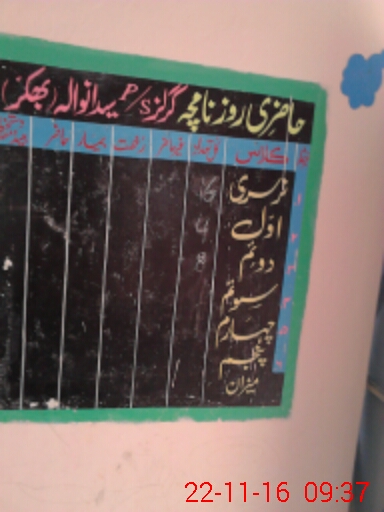 حاضری روزنامچہ گرلز P/S سیدانوالہ (بھکر)
کلاس تعداد غیرحاضر رخصت بیمار حاضر
نرسری
اوّل
دوئم
سوئم
چہارم
پنجم
میزان
22-11-16 09:37